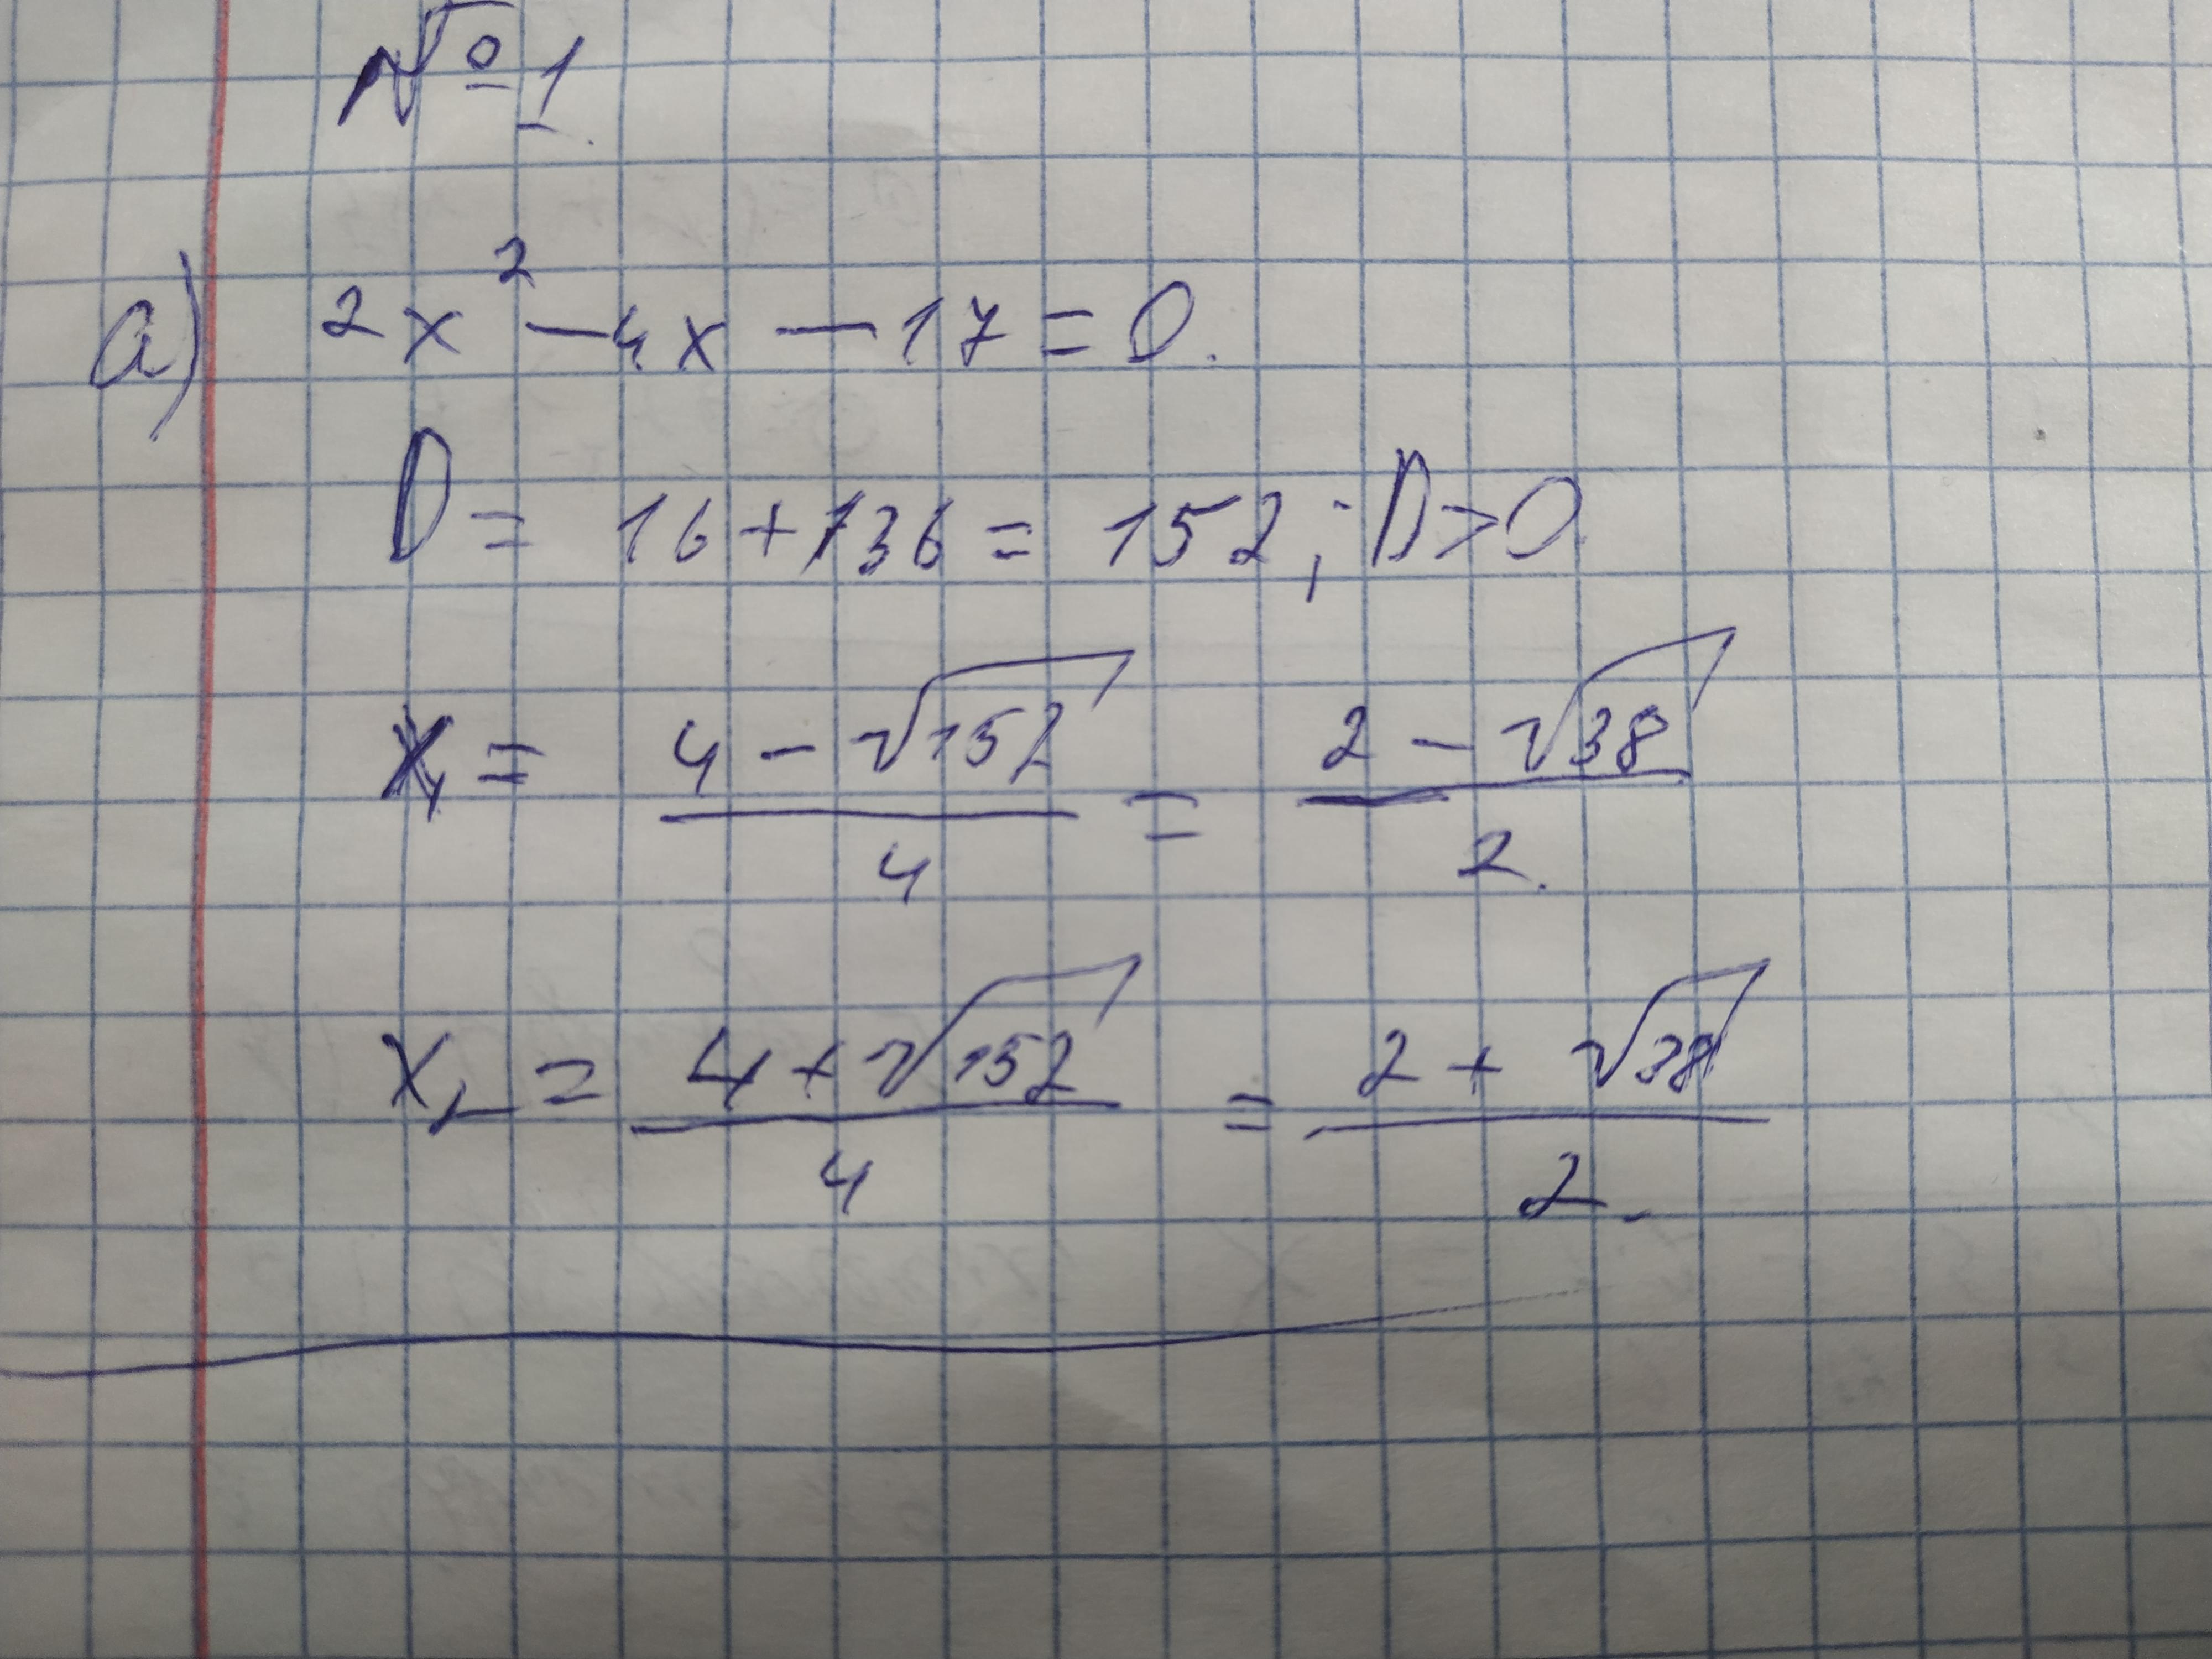 № 1.
а) 2x² - 4x - 17 = 0.
D = 16 + 136 = 152; D > 0
x₁ = (4 - √152)/4 = (2 - √38)/2.
x₂ = (4 + √152)/4 = (2 + √38)/2.